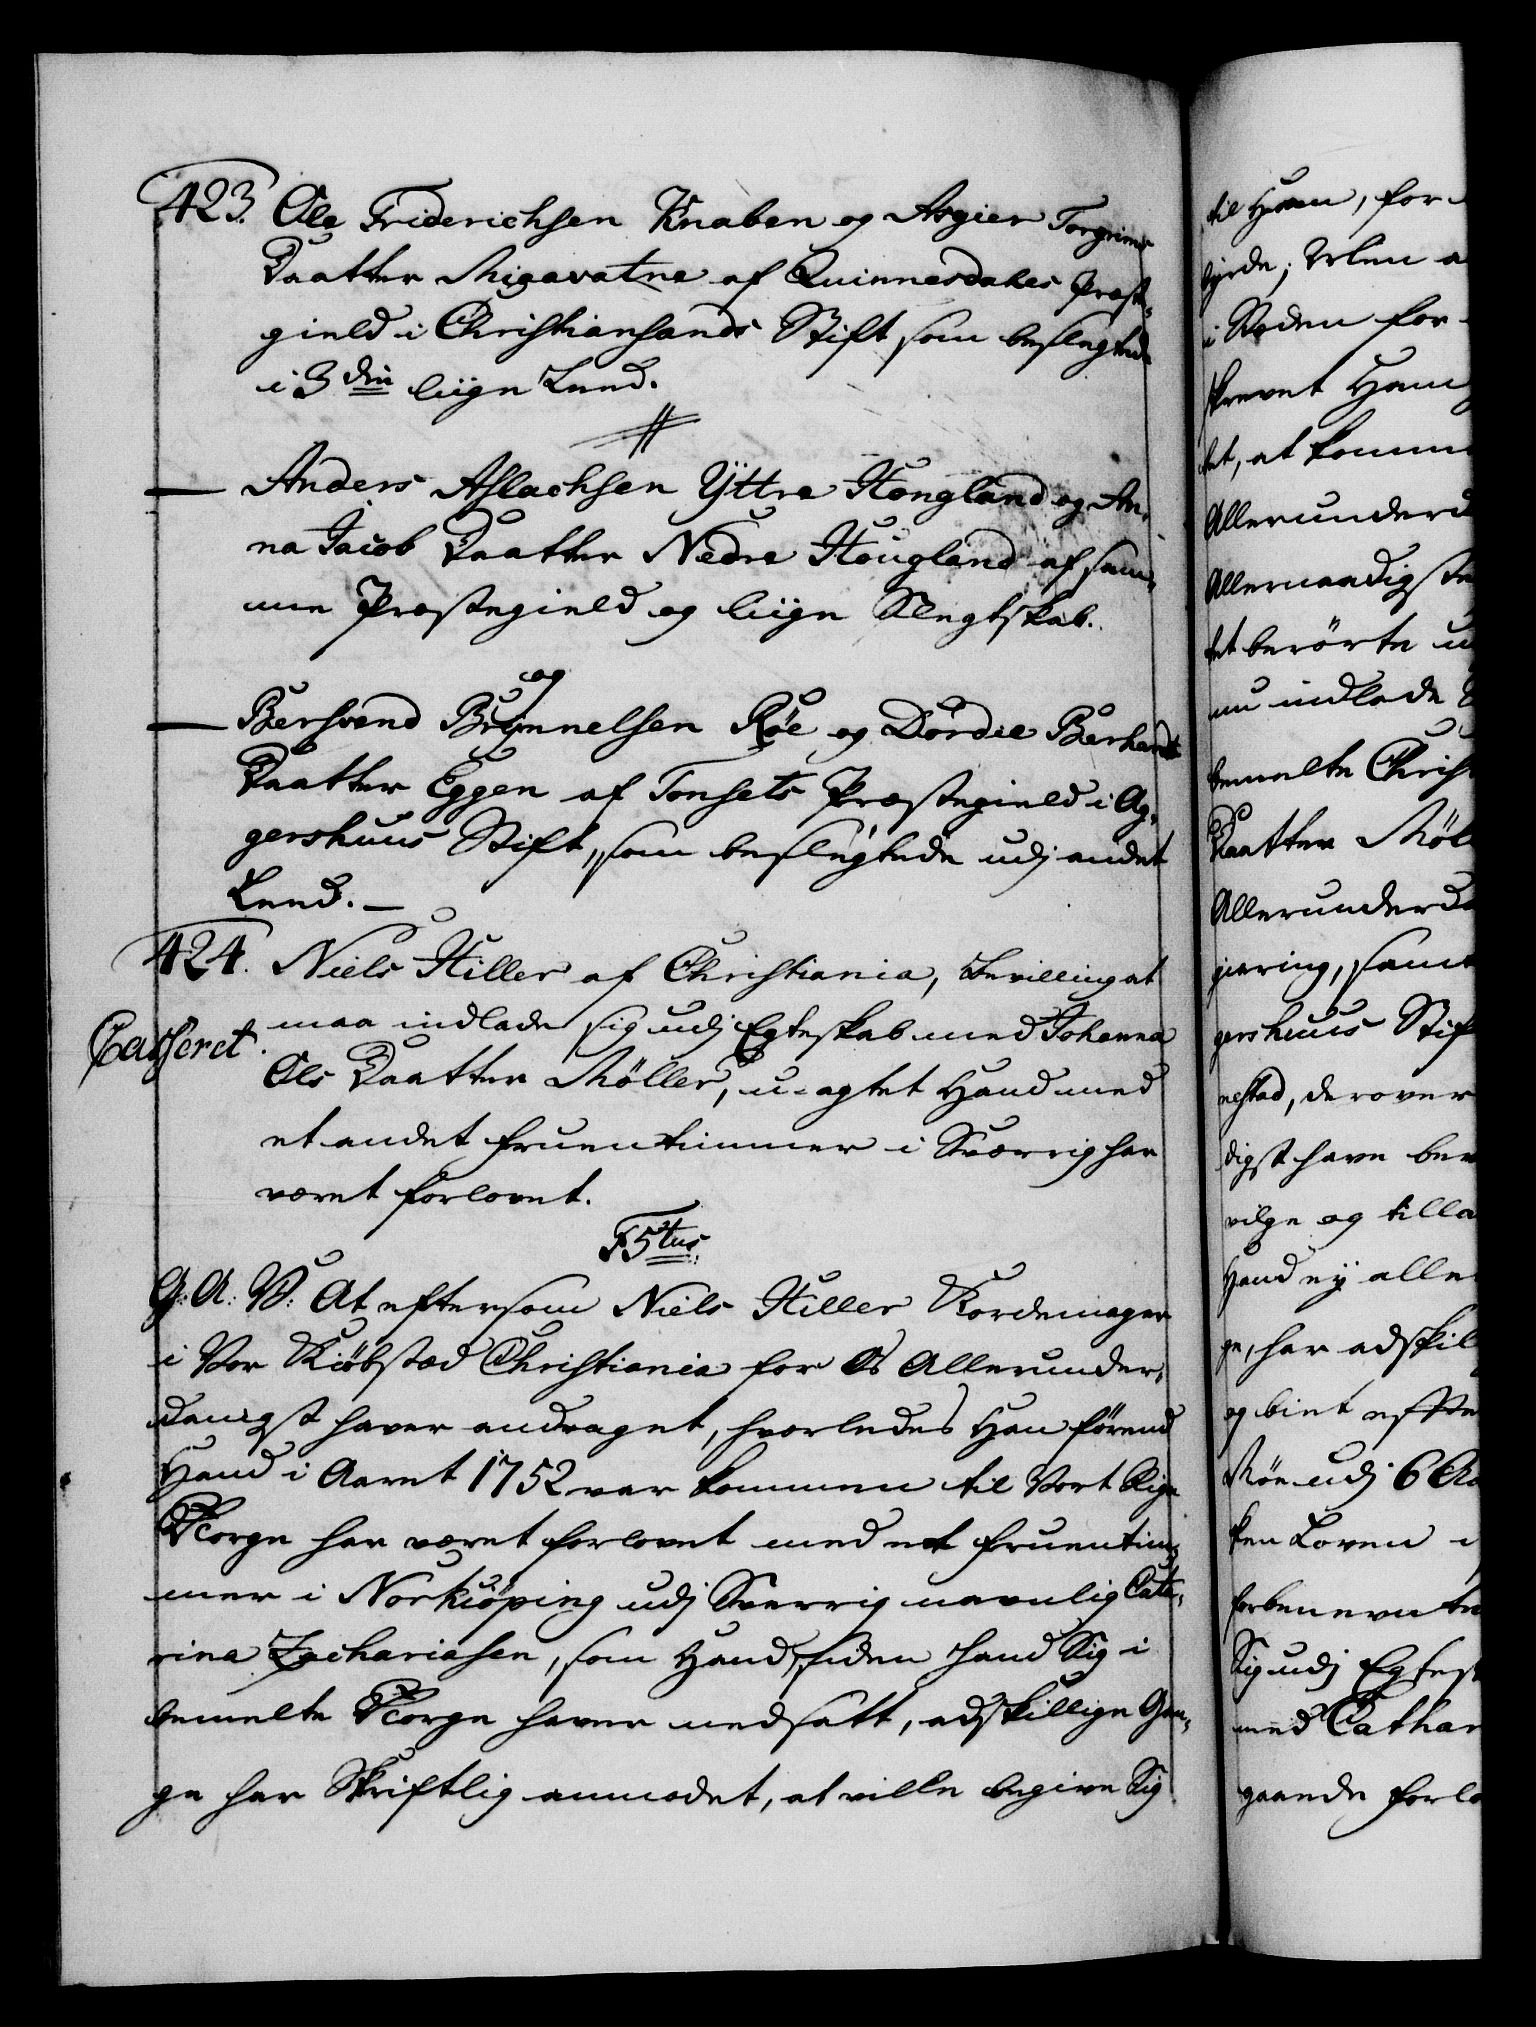 423. Ole Friderichsen Knaben og Asgier Torgrims
Daatter Migavatne af Quinnesdahls Præste-
gield i Christiansands Stift, som beslegtede
i 3die liige Leed.
Anders Aslachsen Ÿttre Hougland og An-
na Jacob Daatter Nedre Hougland af sam-
me Præstegield og liige Slegtskab.
og
Bersvend Brynnelsen Röe og Dordie Berhands
Daatter Eggen af Tonsets Præstegield i Ag-
gershuus Stift, som beslegtede udj andet
Leed.
424. Niels Hiller af Christiania, Bevilling at
maa indlade sig udj Egteskab med Johanna
Casseret.
Ols Daatter Möller, u-agtet Hand med
et andet fruentimmer i Sverrig har
været forlovet.
F 5tus
G: A: V: At eftersom Niels Hiller Kordemager
i Vor Kiöbstæd Christiania for Os Allerunder-
danigst haver andraget, hvorledes Han förend
Hand i Aaret 1752 var kommen til Vort Rige
Norge har været forlovet med et fruentim-
mer i Norkiöping udj Sverrig navnlig Cate-
rina Zachariasen, som Hand, siden Hand Sig i
bemelte Norge haver nedsatt, adskillige Gan-
ge har Skriftlig anmodet, at ville begive Sig
til Ham, for-
byrde; Men a
i Steden for
skrevet Ham
tet, at komme
Allerunderd
Allernaadigste
tet berörte u
nu indlade
bemelte Christ
Daatter Möl
Allerunderda
giæring, samt
gershuus Stif
nestad, derover
digst have bev
vilge og tilla
Hand ey alle
ge, har adskil
og bint efter
Möe udj 6 Aa
ken Loven i
forbenevnte
Sig udj Egtesk
med Cathar
gaaende forlo